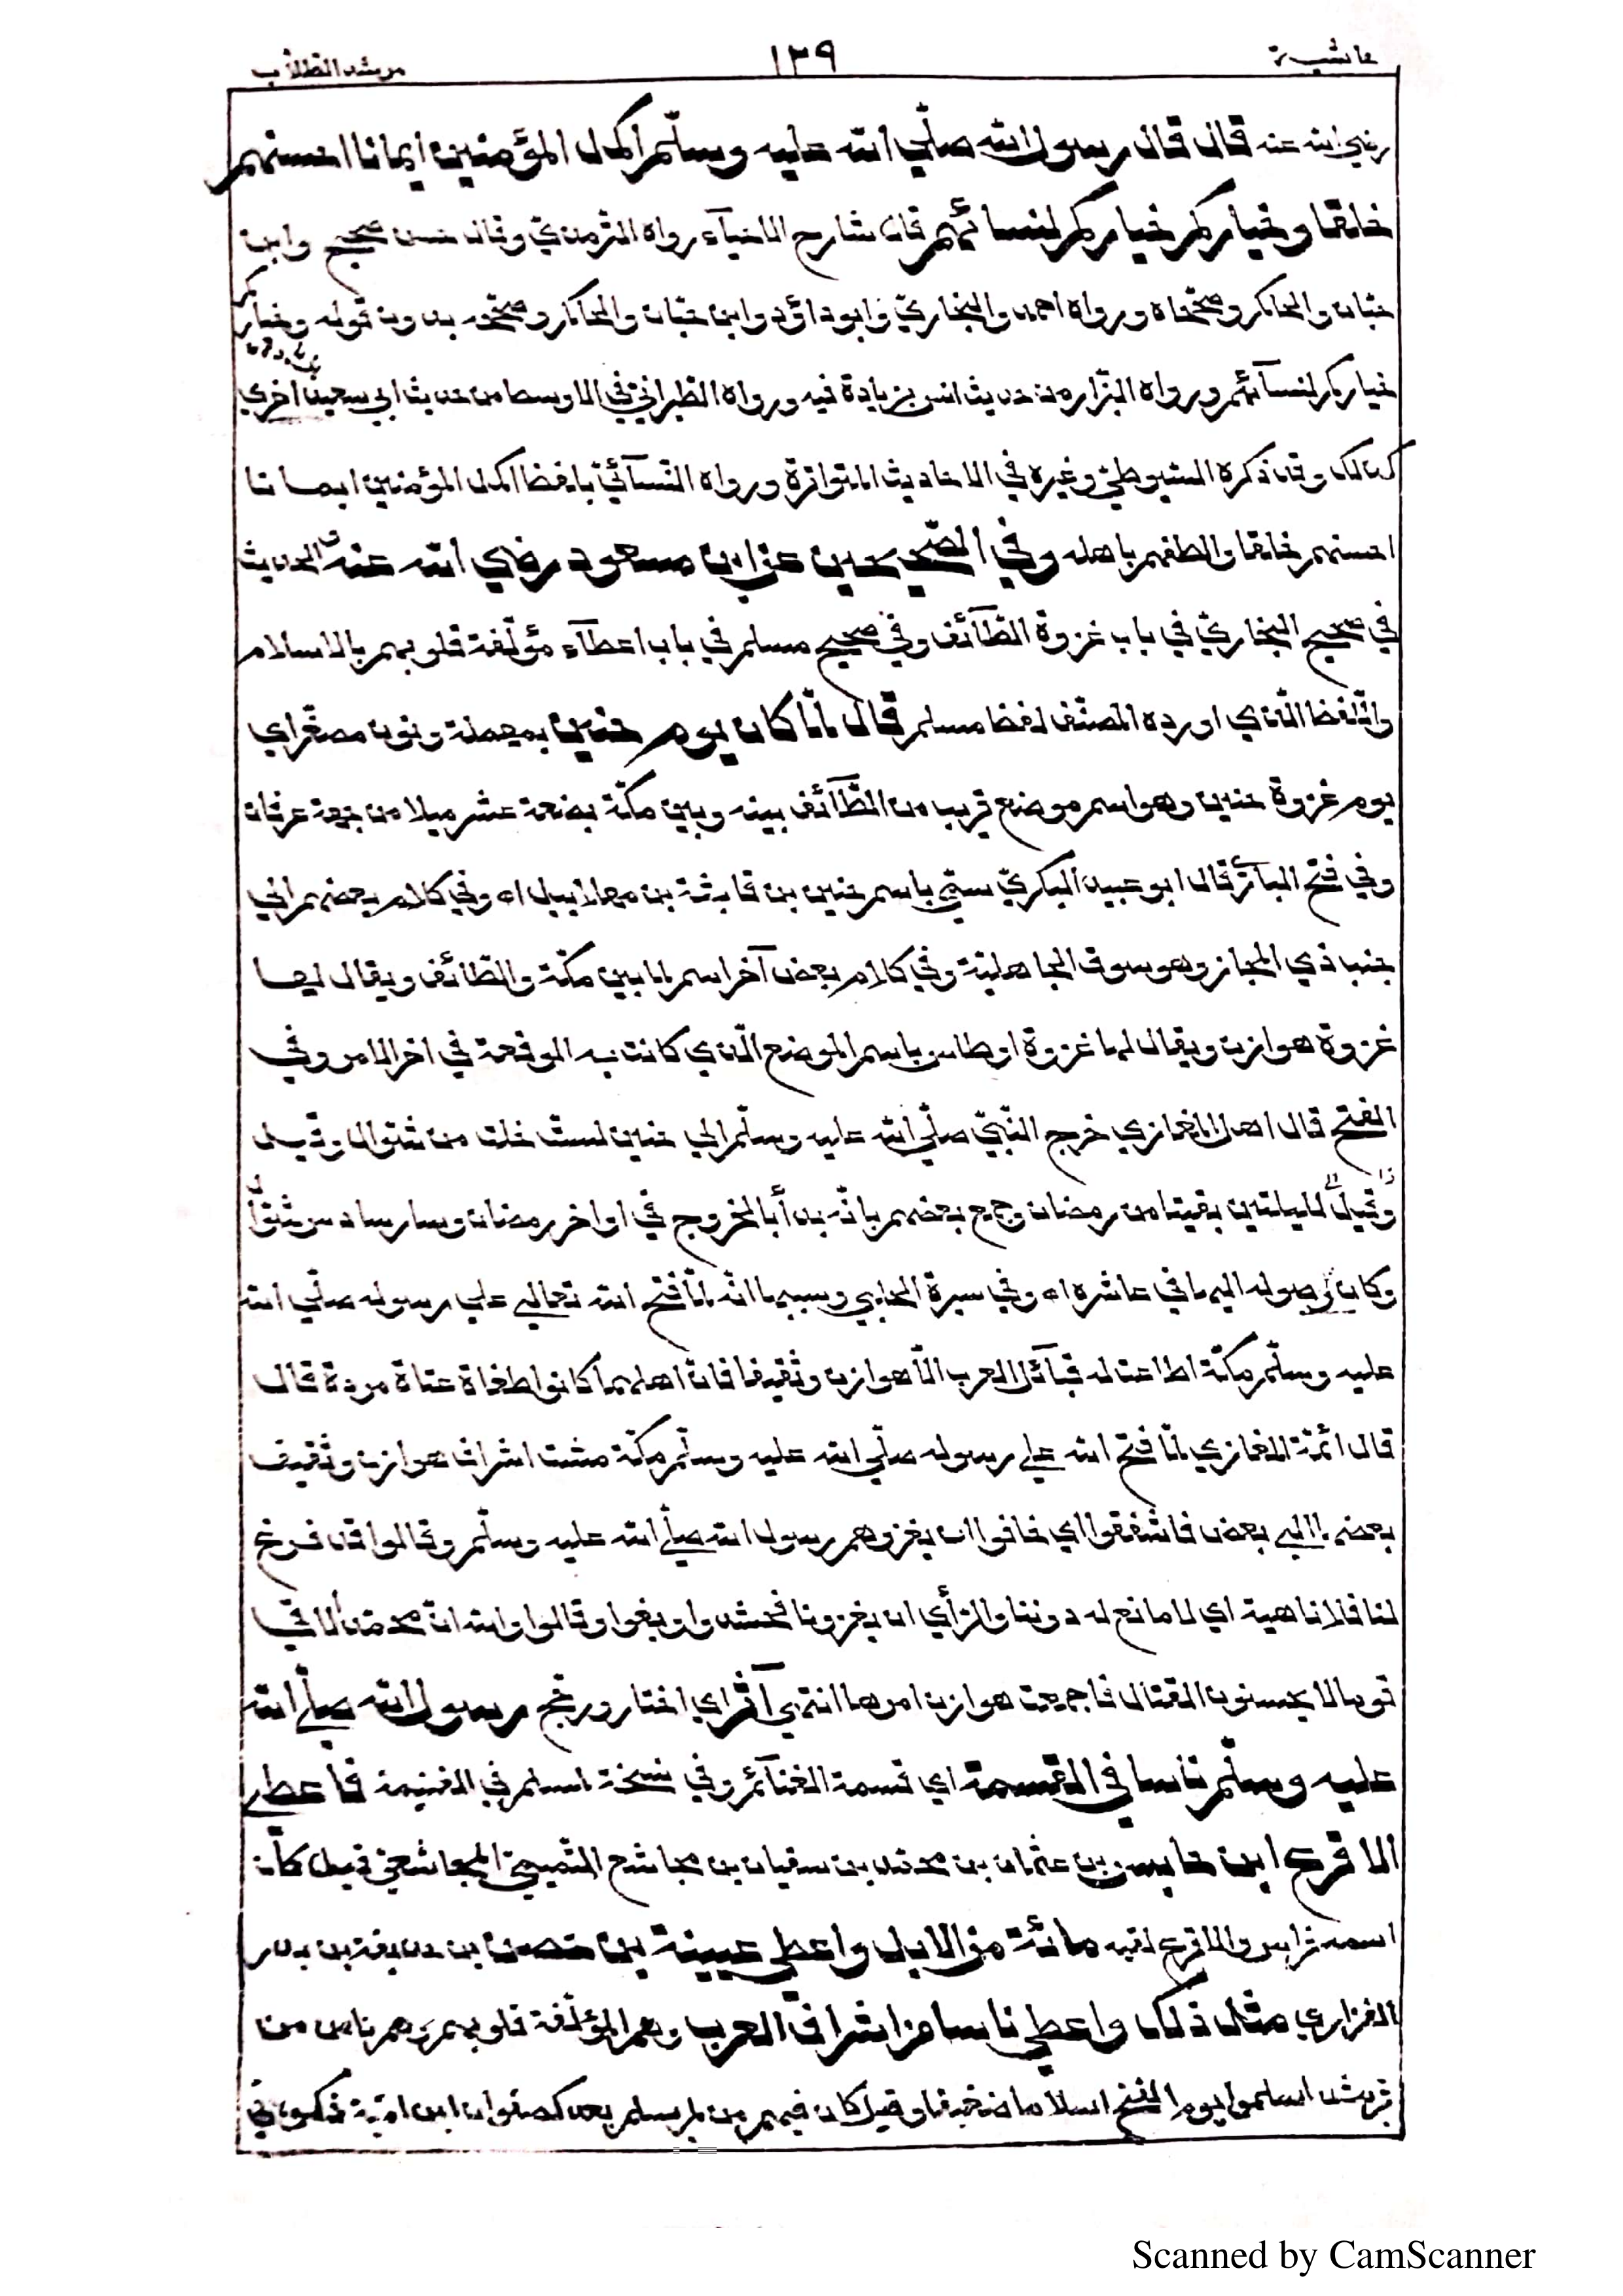 حاشية ١٣٩ مرشد الطلاب
رضي الله عنه قال قال رسول الله صلّي الله عليه وسلّم اكمل المؤمنين ايمانا احسنهم
خلقا وخياركم خياركم لنسائهم قال شارح الاحيآء رواه الترمذيّ وقال حسن صحيح وابن
حبّان والحاكم وصحّحاه ورواه احمد والبخاريّ وابو داؤد وابن حبّان والحاكم وصحّحه بدون قوله وخياركم
خياركم لنسآئهم ورواه البزّار من حديث انس بزيادة فيه ورواه الطّبرانيّ في الاوسط من حديث ابي سعيد اخري
كذلك وقد ذكره السّيوطيّ وغيره في الاحاديث المتواترة ورواه النّسآئيّ بلفظ اكمل المؤمنين ايمانا
احسنهم خلقا والطفهم باهله وفي الصّحيحين عن ابن مسعود رضي الله عنه الحديث
في صحيح البخاريّ في باب غزوة الطّآئف وفي صحيح مسلم في باب اعطآء مؤلّفة قلوبهم بالاسلام
واللّفظ الّذي اورده المصنّف لفظ مسلم قال لمّا كان يوم حنين بمهملة ونون مصغّرا اي
يوم غزوة حنين وهو اسم موضع قريب من الطّآئف بينه وبين مكّة بضعة عشر ميلا من جهة عرفات
وفي فتح الباري قال ابو عبيد البكريّ سمّي باسم حنين بن قابثة بن مهلائيل اه وفي كلام بعضهم الي
جنب ذي المجاز وهو سوق الجاهليّة وفي كلام بعض آخر اسم لما بين مكّة والطّائف ويقال لها
غزوة هوازن ويقال لها غزوة اوطاس باسم الموضع الّذي كانت به الوقعة في اخر الامر وفي
الفتح قال اهل المغازي خرج النّبيّ صلّي الله عليه وسلّم الي حنين لستّ خلت من شوّال وقيل
وقيل لليلتين بقيتا من رمضان وجمع بعضهم بانّه بدأ بالخروج في اواخر رمضان وسار سادس شوّال
وكان وصوله اليها في عاشره اه وفي سيرة الحلبي وسببها انّه لمّا فتح الله تعالي علي رسوله صلّي الله
عليه وسلّم مكّة اطاعت له قبآئل العرب الّا هوازن وثقيفا فانّ اهلهما كانوا طغاة عتاة مردة قال
قال ائمّة المغازي لمّا فتح الله علي رسوله صلّي الله عليه وسلّم مكّة مشت اشراف هوازن وثقيف
بعضها الي بعض فاشفقوا اي خافوا ان يغزوهم رسول الله صلّي الله عليه وسلّم وقالوا قد فرغ
لنا فلا ناهية اي لا مانع له دوننا والرّأي ان يغزونا فحشدوا وبغوا وقالوا والله انّ محمّدا لاقي
قوما لا يحسنون القتال فاجمعت هوازن امرها انتهي آثر اي اختار ورجّح رسول الله صلّي الله
عليه وسلّم ناسا في القسمة اي قسمة الغنآئم وفي نسخة لمسلم في الغنيمة فاعطي
الاقرع ابن حابس بن عثمان بن محمّد بن سفيان بن مجاشع التّميميّ المجاشعيّ قيل كان
اسمه فراس والاقرع لقبه مائة من الابل واعطي عيينة بن حصن بن حذيفة بن بدر
الفزاري مثل ذلك واعطي ناسا من اشراف العرب وهم المؤلّفة قلوبهم وهم ناس من
قريش اسلموا يوم الفتح اسلاما ضعيفا وقيل كان فيهم من لم يسلم بعد كصفوان ابن اميّة ذكره في
Scanned by CamScanner